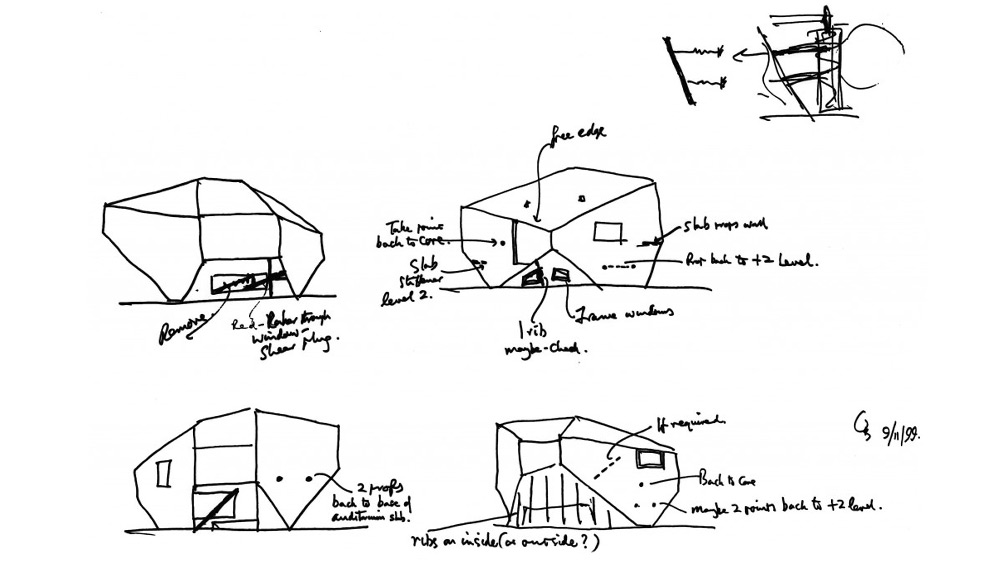 free edge
Take point
back to core.
Slab
stiffener
level 2.
slab props wall
Prop back to +2 level.
Frame windows
1 rib
maybe-check.
Remove.
Red-Rebar through
window-
Shear Plug.
2 props
back to base of
auditorium slab.
If required.
Back to Core
maybe 2 points back to +2 level.
ribs on inside (or outside?)
9/11/99.